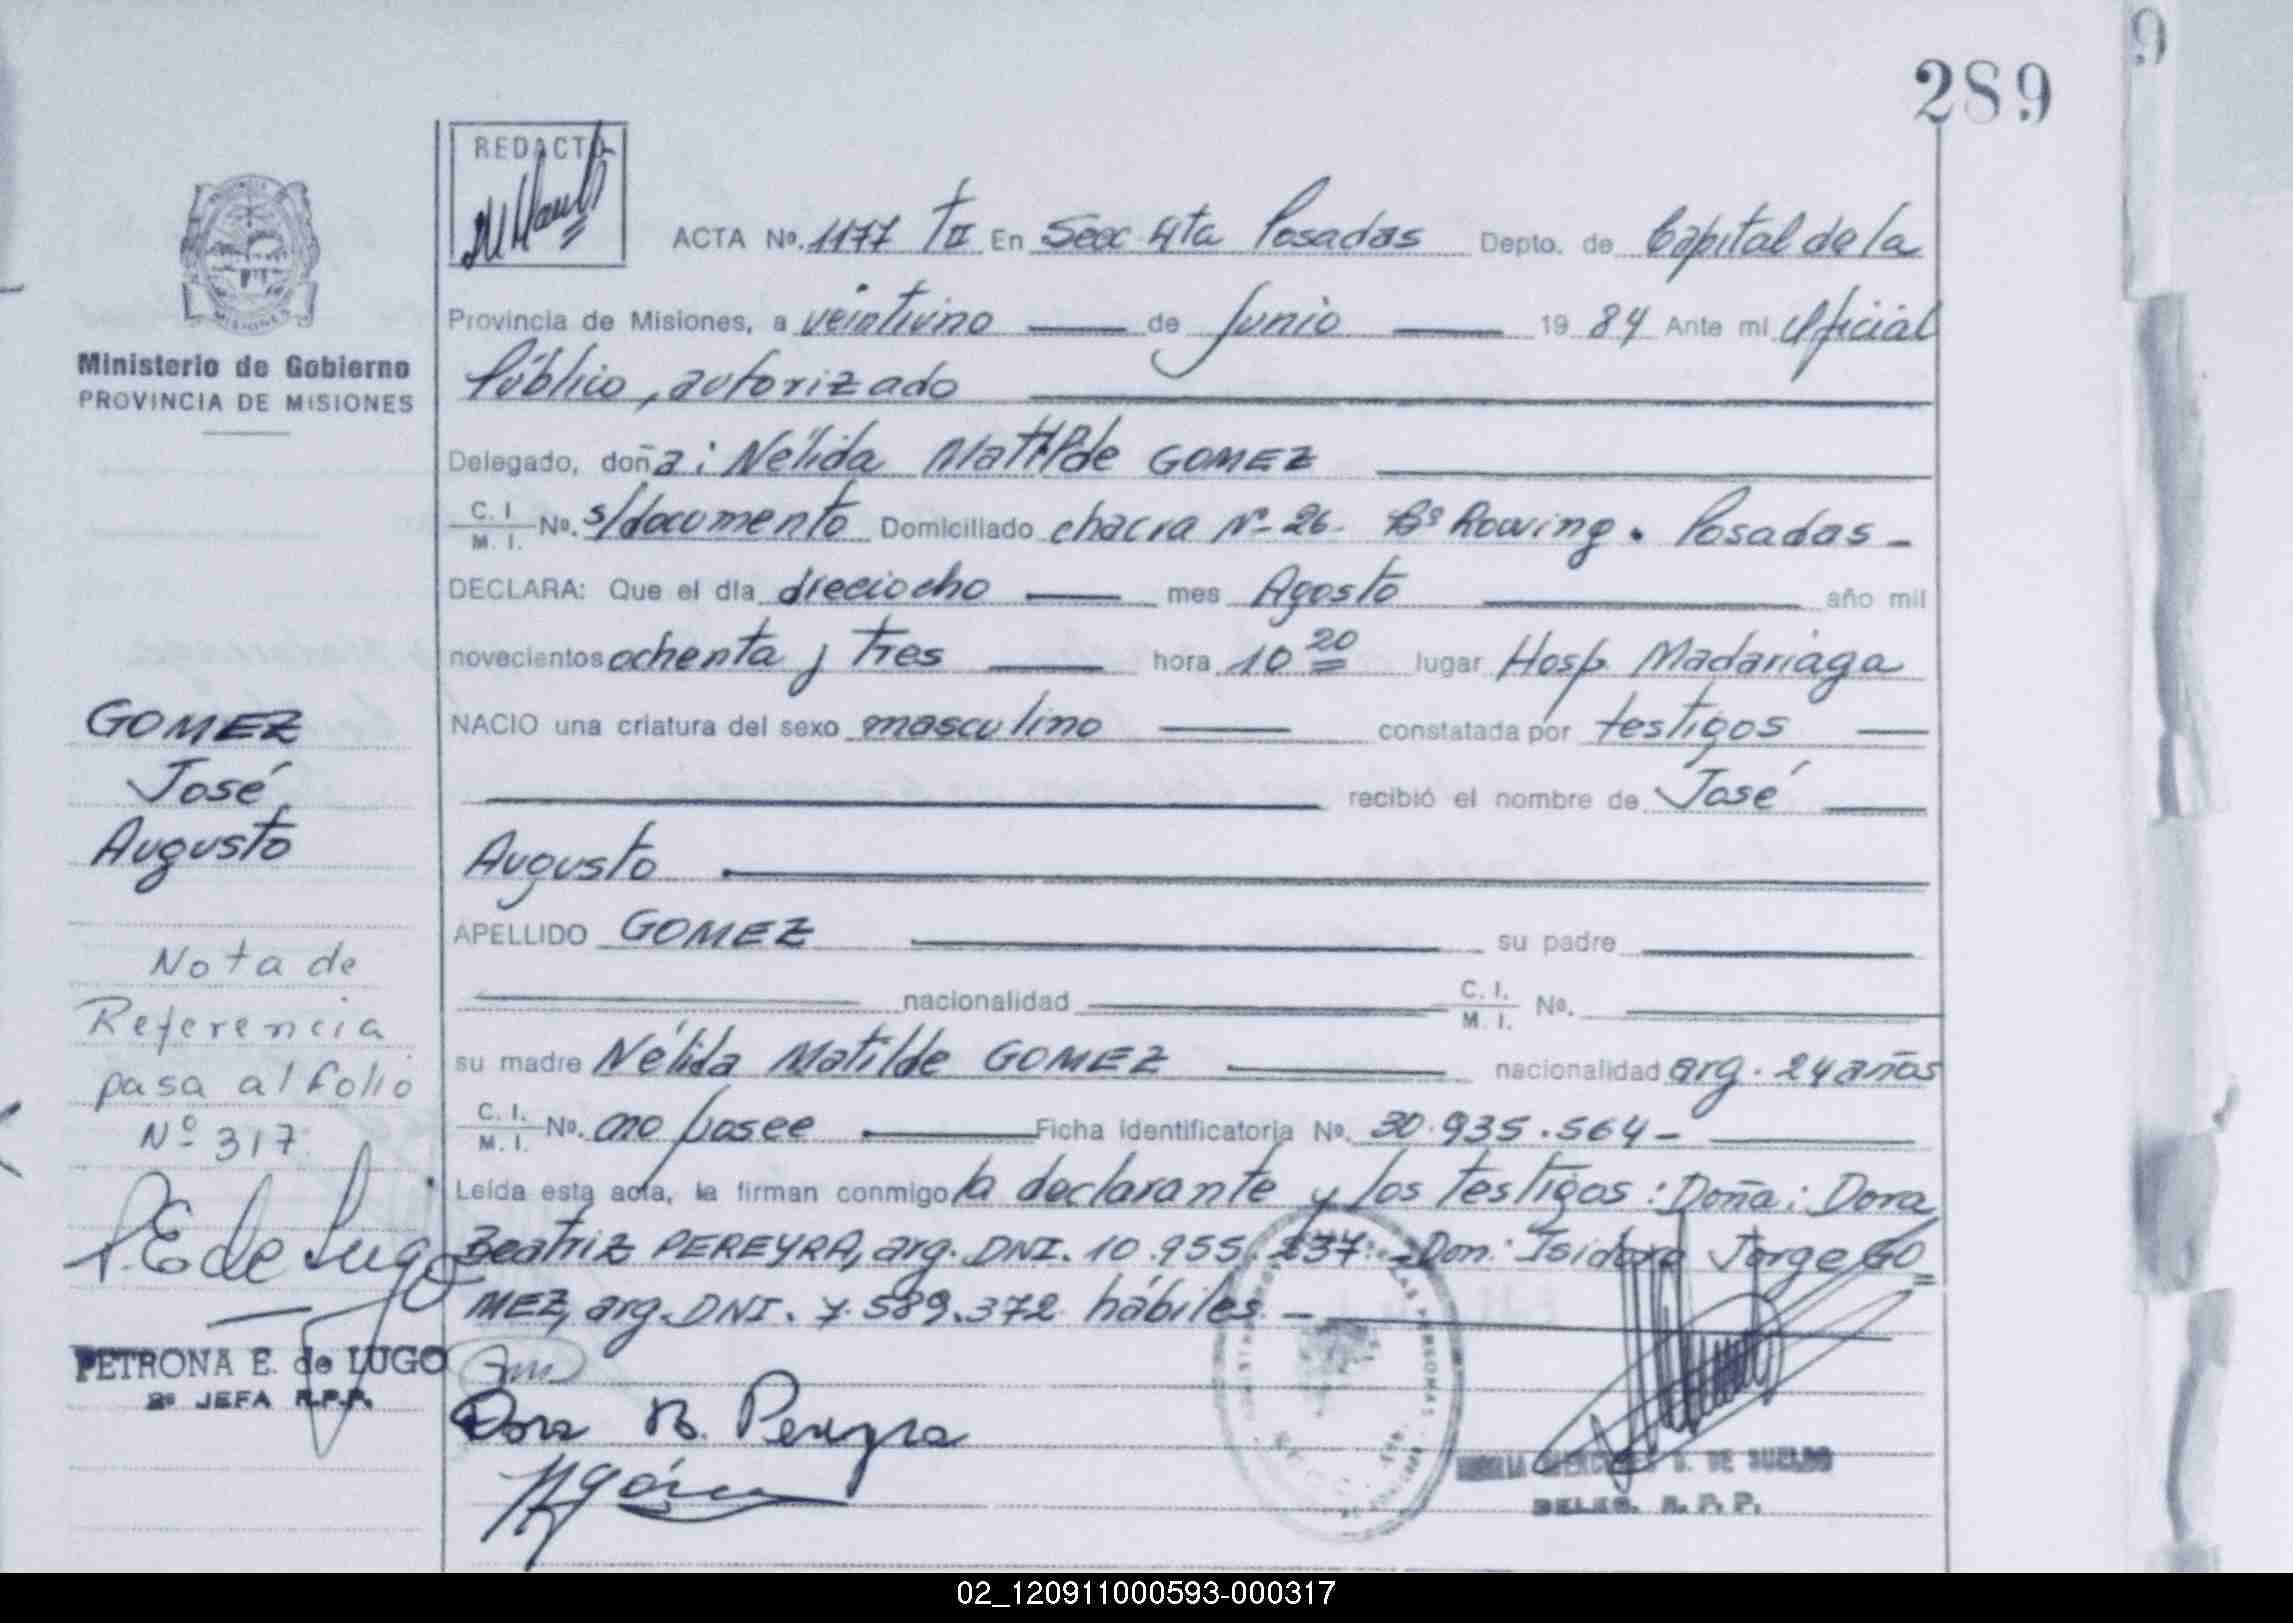 289
9
REDACTO
ACTA Nº. 1177 TII En Secc 4ta Posadas Depto. de Capital de la
Provincia de Misiones, a veintiuno de Junio 19 84 Ante mi Oficial
Público, autorizado
MISIONES
Ministerio de Gobierno
PROVINCIA DE MISIONES
Delegado, doña: Nélida Matilde GOMEZ
C. I. M. I. Nº. s/documento Domiciliado chacra Nº 26. Bº Rowing. Posadas -
DECLARA: Que el día dieciocho mes Agosto año mil
novecientos ochenta y tres hora 10 20 lugar Hosp. Madariaga
NACIO una criatura del sexo masculino constatada por testigos
recibió el nombre de José
Augusto
APELLIDO GOMEZ su padre
nacionalidad C. I. M. I. Nº.
su madre Nélida Matilde GOMEZ nacionalidad arg. 24 años
C. I. M. I. Nº. no posee Ficha identificatoria Nº. 30.935.564 -
Leída esta acta, la firman conmigo la declarante y los testigos: Doña: Dora
Beatriz PEREYRA, arg. DNI. 10.955.237. - Don: Isidoro Jorge GO=
MEZ, arg. DNI. 7.589.372 hábiles. -
Dora B. Pereyra
DE SUELDO
DELEG. R. P. P.
GOMEZ
José
Augusto
Nota de
Referencia
pasa al folio
Nº 317.
P. E de Lugo
PETRONA E. de LUGO
2º JEFA R.P.P.
02_120911000593-000317